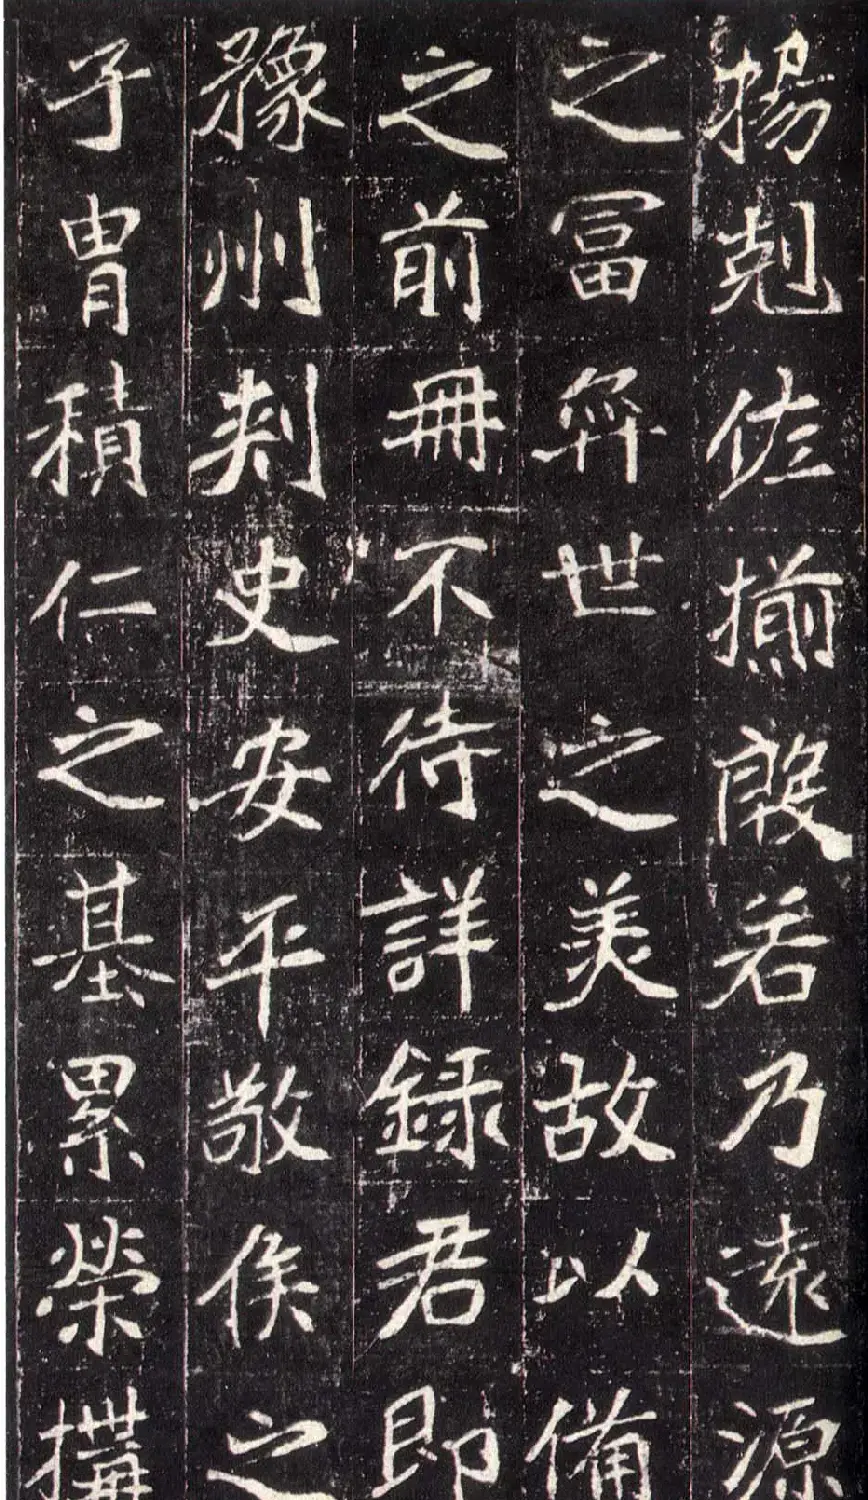 揚剋佐揃殷若乃遠源
之冨弈世之美故以備
之前冊不待詳録君即
豫州刺史安平敬侯之
子冑積仁之基累榮搆